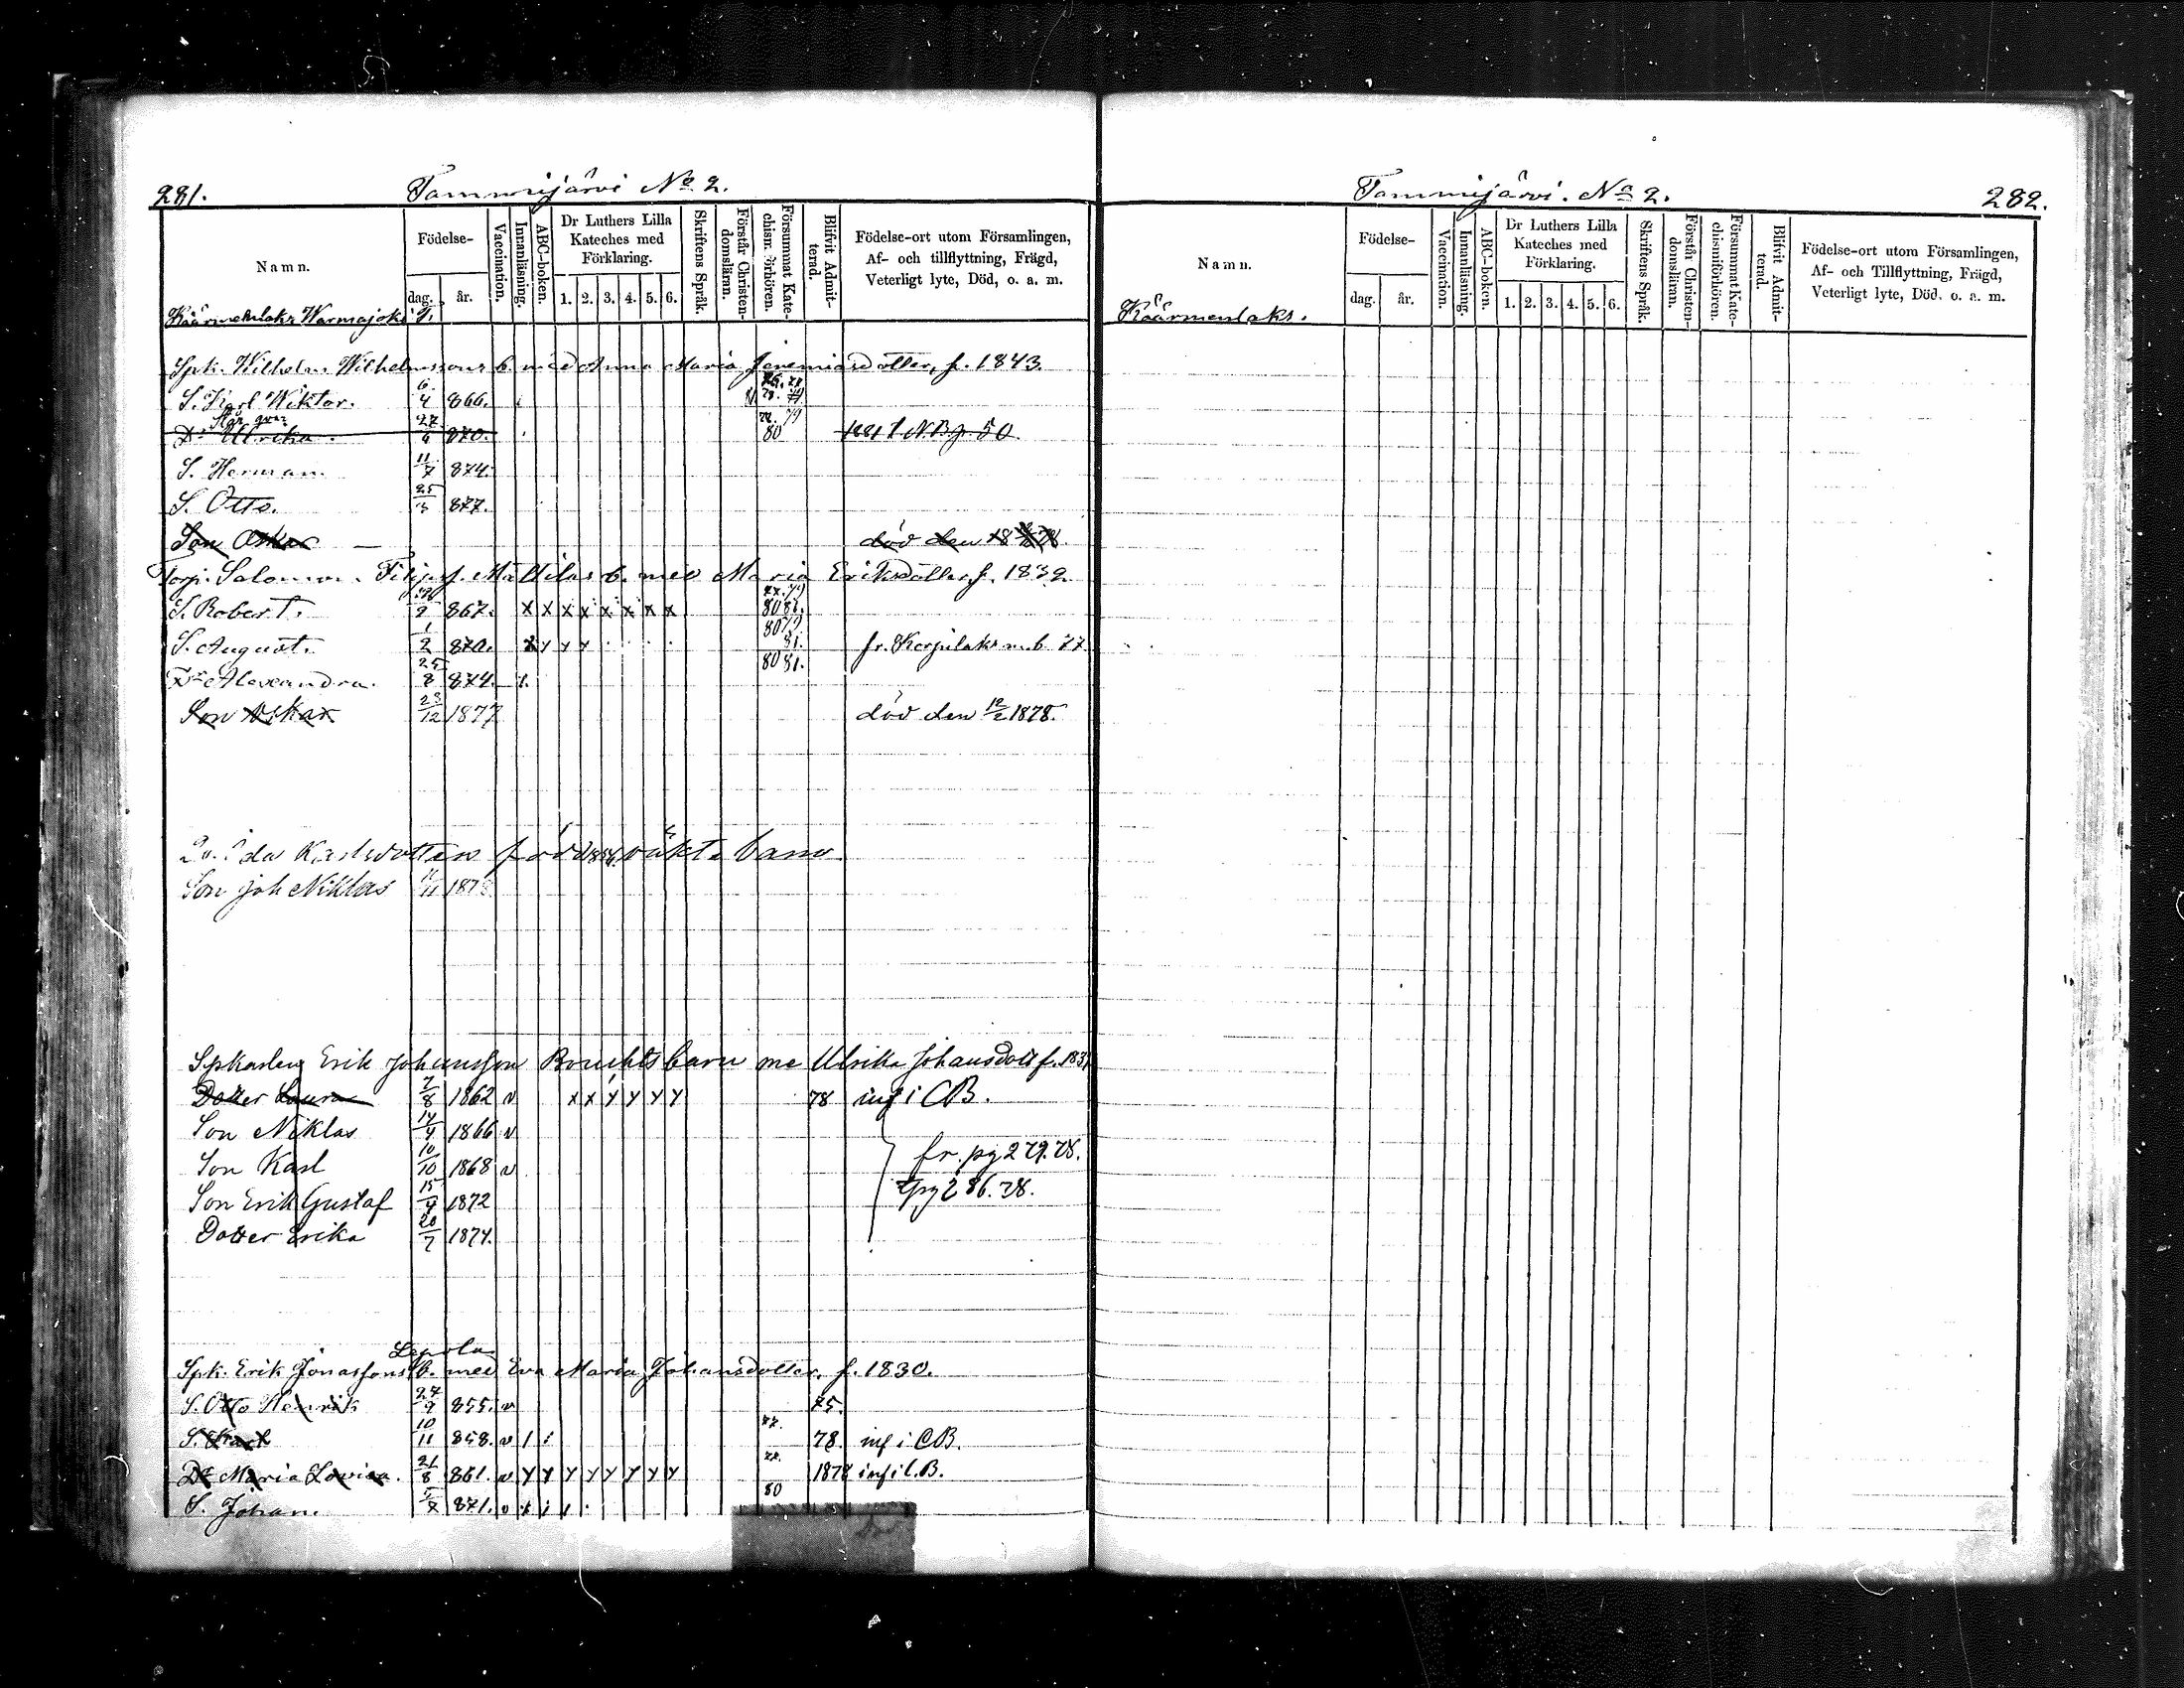 281.
Tammijärvi No 2.
Namn.
Födelse-
dag.
år.
Vaccination.
Innanläsning.
ABC-boken.
Dr Luthers Lilla Kateches med Förklaring.
1. 2. 3. 4. 5. 6.
Skriftens Språk.
Förstår Christendomsläran.
Försummat Katechism. förhören.
Blifvit Admitterad.
Födelse-ort utom Församlingen,
Af- och tillflyttning, Frägd,
Veterligt lyte, Död, o. a. m.
Käärmenlaks Warmajoki
Spk. Wilhelm Wilhelmssons b. med Anna Maria Jeremiasdotter, f. 1843.
S. Karl Wiktor. 6/4 866.
Står qvar
Dr Ulrika. 27/4 870. 80 N.B. p. 50
S. Herman 11/7 874.
S. Otto. 25/3 877.
Son Oskar död den
Torp. Salomon f. Mattilas b. med Maria Eriksdotter f. 1832
S. Robert. 867. x x x x x x x x 80 81.
S. August. 1/2 870. x y y y 80 81. fr. Kerpilaks m.b. 77
Dr Alexandra. 25/8 874. 80 81.
Son Oskar 23/12 1877 död den 12/2 1878.
Ida Karlsdotters född oäkta barn
Son Joh Niklas 1878
Spkarlen Erik Johansson Bruukts barn me Ulrika Johansdott f. 183
Dotter Laura 7/8 1862 v x x y y y y 78 inf i CB.
Son Niklas 14/4 1866 v
Son Karl 10/10 1868 v fr. pg 279. 78.
Son Erik Gustaf 15/4 1872 pg 286. 78.
Dotter Erika 20/7 1874.
Lepola
Spk. Erik Jonassons b. med Eva Maria Johansdotter. f. 1830.
S. Otto Henrik 27/9 855. v 75.
S. Karl 10/11 858. v 78. inf i CB.
Dr Maria Lovisa. 21/8 861. v y y y y y y y y 1878 inf i C.B.
S. Johan. 871. v 80
Tammijärvi. No 2.
282.
Namn.
Födelse-
dag.
år.
Vaccination.
Innanläsning.
ABC-boken.
Dr Luthers Lilla Kateches med Förklaring.
1. 2. 3. 4. 5. 6.
Skriftens Språk.
Förstår Christendomsläran.
Försummat Katechismiförhören.
Blifvit Admitterad.
Födelse-ort utom Församlingen,
Af- och Tillflyttning, Frägd,
Veterligt lyte, Död. o. a. m.
Käärmenlaks.